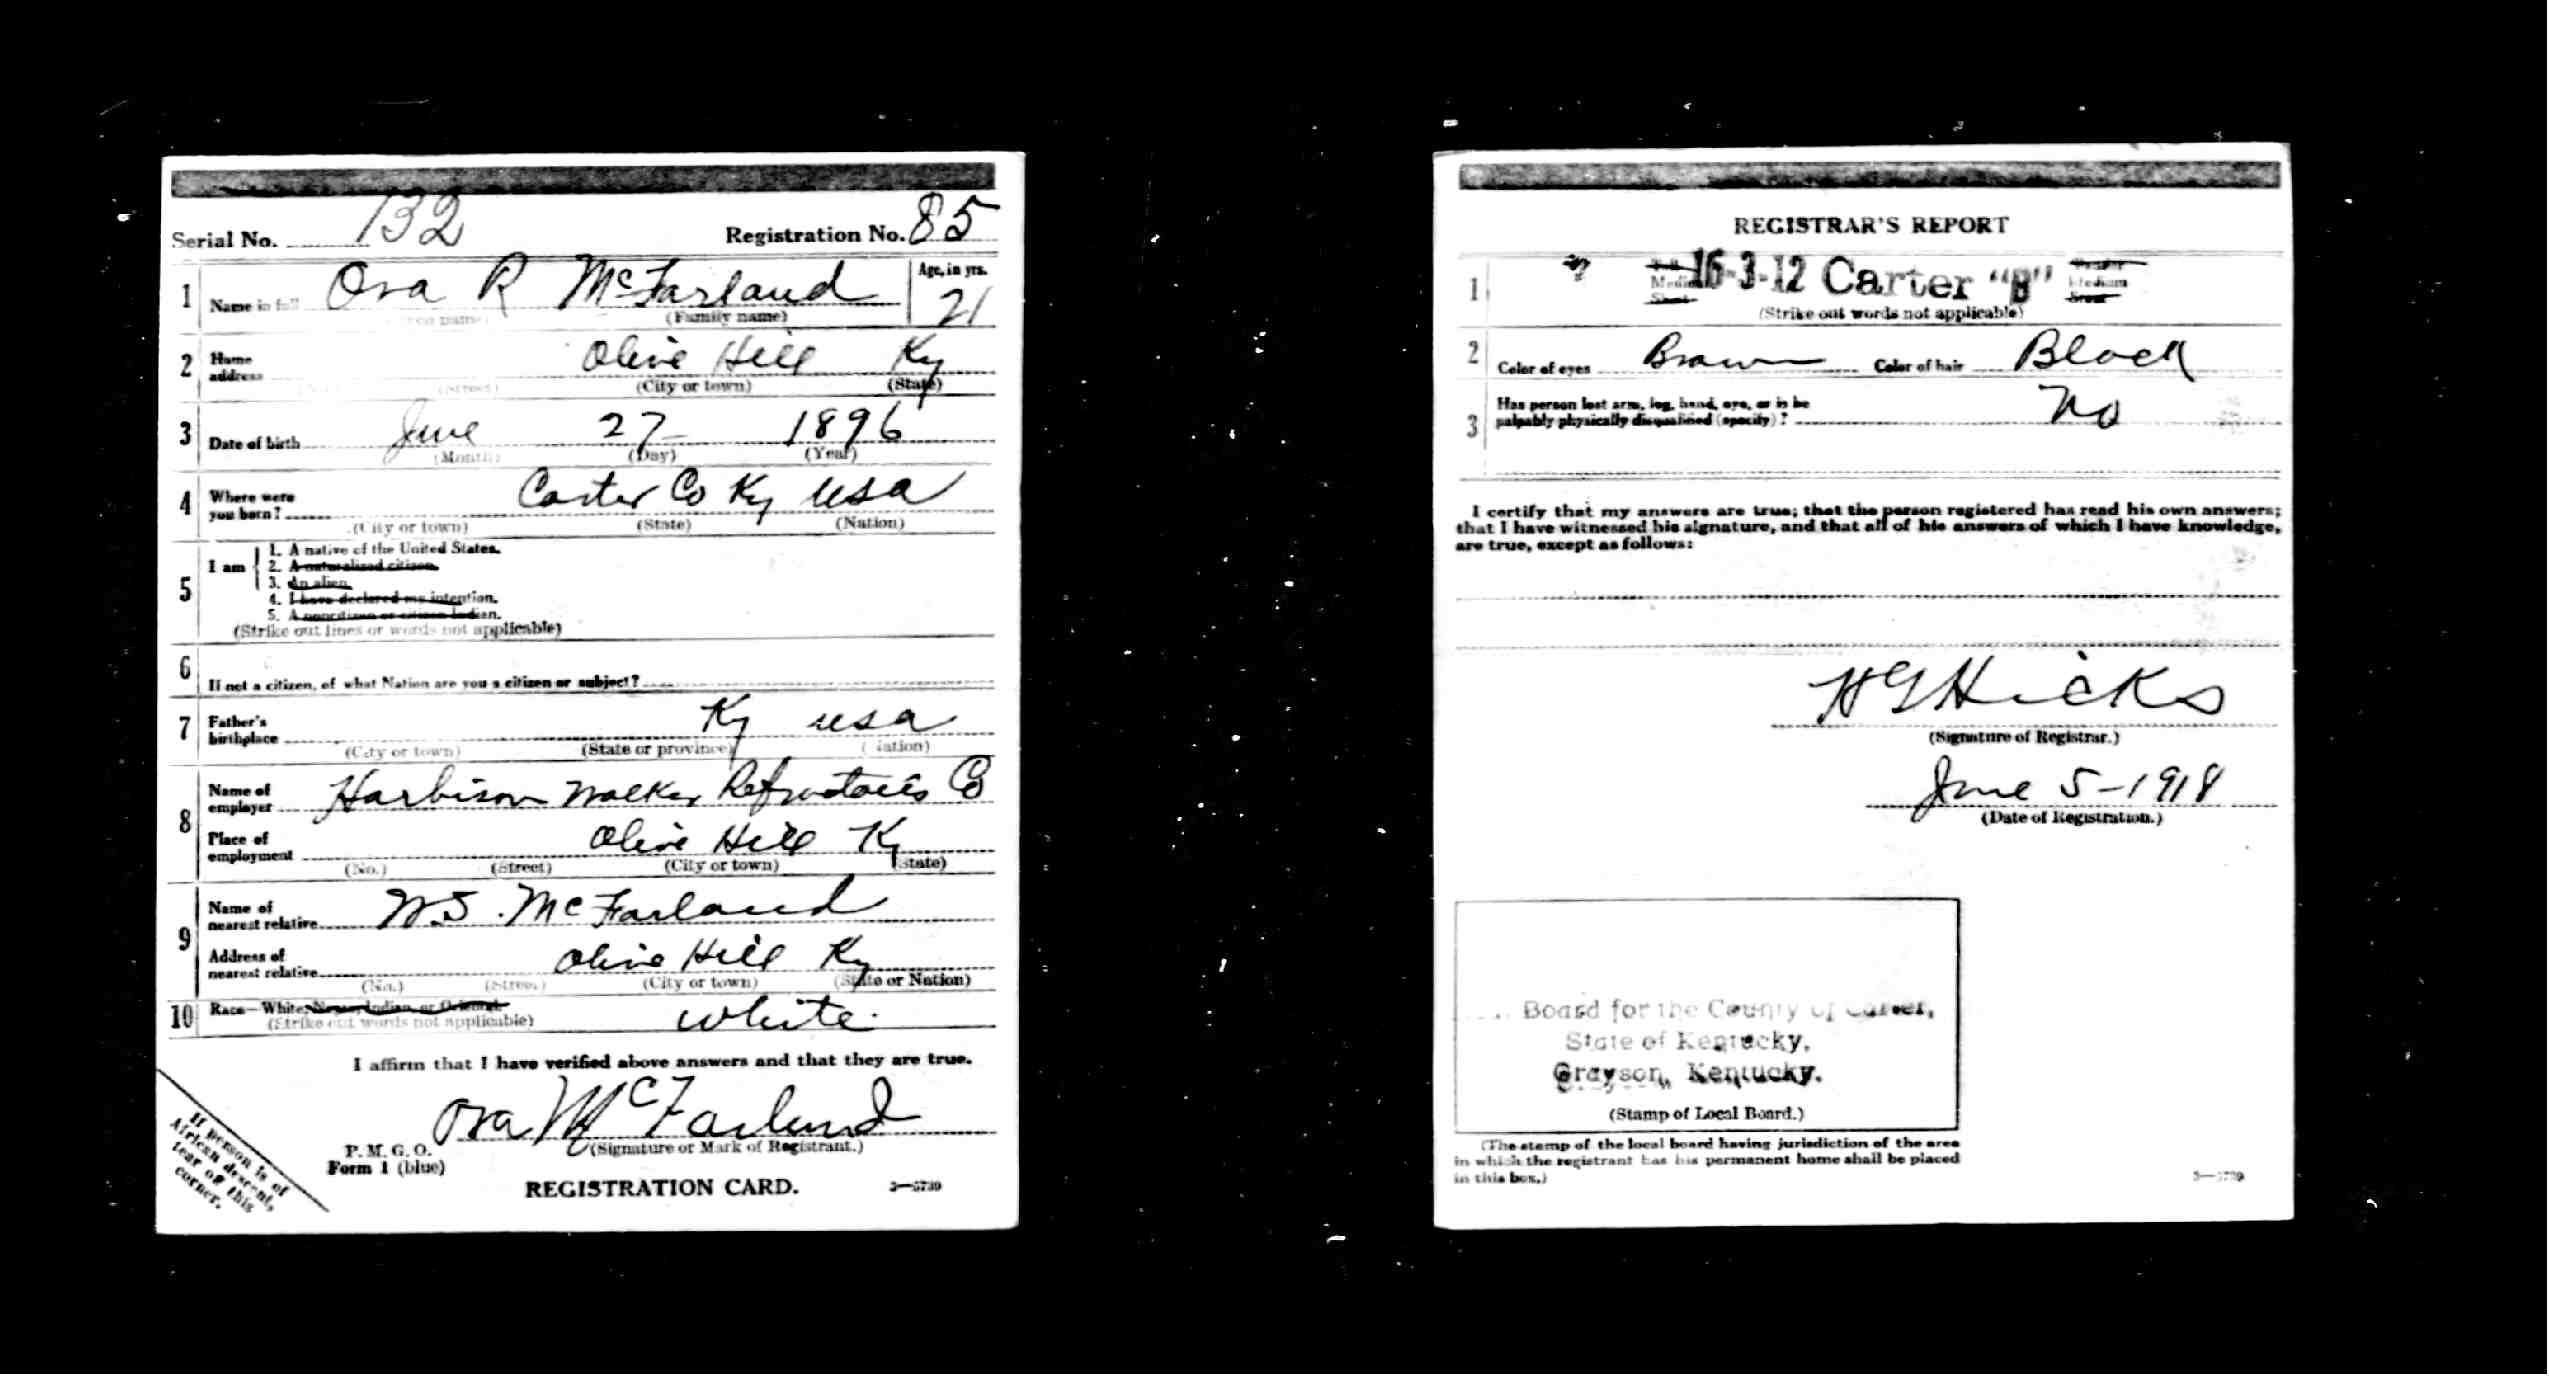 Serial No. 132 Registration No. 85
1 Name in full Ova R McFarland Age, in yrs.
(Family name) 21
2 Home address Olive Hill Ky
(Street) (City or town) (State)
3 Date of birth June 27 1896
(Month) (Day) (Year)
4 Where were you born? Carter Co Ky USA
(City or town) (State) (Nation)
5 I am
1. A native of the United States.
2. A naturalized citizen.
3. An alien.
4. I have declared my intention.
5. A noncitizen or citizen Indian.
(Strike out lines or words not applicable)
6 If not a citizen, of what Nation are you a citizen or subject?
7 Father's birthplace Ky USA
(City or town) (State or province) (Nation)
8 Name of employer Harbison Walker Refractories Co
Place of employment Olive Hill Ky
(No.) (Street) (City or town) (State)
9 Name of nearest relative McFarland
Address of nearest relative Olive Hill Ky
(No.) (Street) (City or town) (State or Nation)
10 Race—White, Negro, Indian, or Oriental white
(Strike out words not applicable)
I affirm that I have verified above answers and that they are true.
Ova McFarland
P. M. G. O. (Signature or Mark of Registrant.)
Form 1 (blue)
REGISTRATION CARD. 3—5739
If person is of
African descent,
tear off this
corner.
REGISTRAR'S REPORT
1 16-3-12 Carter "B" Medium
(Strike out words not applicable)
2 Color of eyes Brown Color of hair Black
3 Has person lost arm, leg, hand, eye, or is he
palpably physically disqualified (specify)? No
I certify that my answers are true; that the person registered has read his own answers;
that I have witnessed his signature, and that all of his answers of which I have knowledge,
are true, except as follows:
H G Hicks
(Signature of Registrar.)
June 5-1918
(Date of Registration.)
Board for the County of Carter,
State of Kentucky,
Grayson, Kentucky.
(Stamp of Local Board.)
(The stamp of the local board having jurisdiction of the area
in which the registrant has his permanent home shall be placed
in this box.)
3—5739